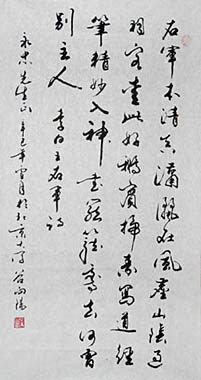 右軍本清真瀟灑在風塵山陰過
羽客愛此好鵝賓掃素寫道經
筆精妙入神書罷籠鵝去何曾
別主人 李白王右軍詩
永忠先生正 辛巳年月於北京大學 谷向陽